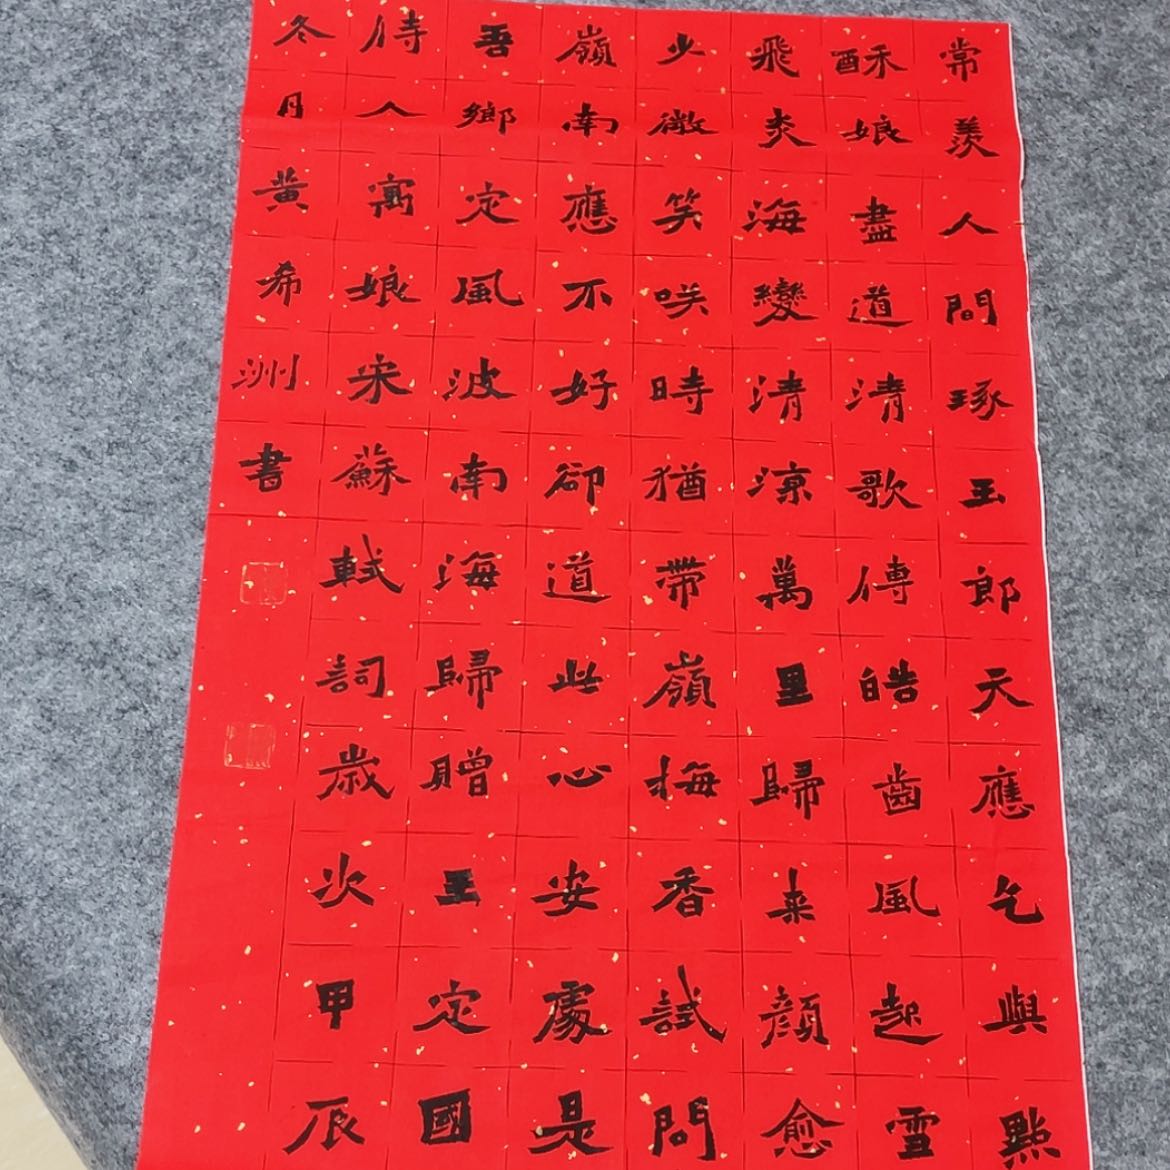 常羨人間琢玉郎天應乞與點
酥娘盡道清歌傳皓齒風起雪
飛炎海變清涼萬里歸来顏愈
少微笑咲時猶帶嶺梅香試問
嶺南應不好卻道此心安處是
吾鄉定風波南海歸贈王定國
侍人寓娘宋蘇軾詞歲次甲辰
冬月黃希洲書